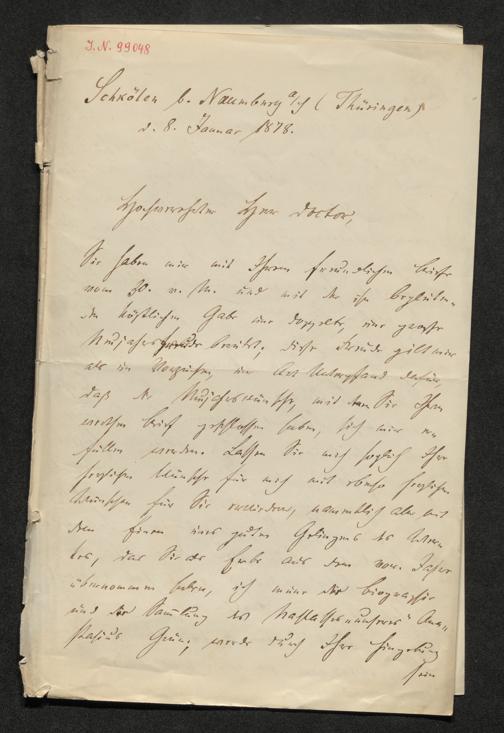 J. N. 99048
Schkölen b. Naumburg a/S (Thüringen)
d. 8. Januar 1878.
Hochverehrter Herr Doctor,
Sie haben mir mit Ihrem freundlichen Briefe
vom 30. v. M. und mit der ihn begleiten-
den köstlichen Gabe eine doppelte, eine große
Neujahrsfreude bereitet; diese Freude gilt mir
als ein Vorzeichen, eine Art Unterpfand dafür,
daß die Neujahrswünsche, mit denen Sie Ihren
werthen Brief geschlossen haben, sich mir er-
füllen werden. Lassen Sie mich sogleich Ihre
herzlichen Wünsche für mich mit ebenso herzlichen
Wünschen für Sie erwiedern, namentlich aber mit
dem Einen eines guten Gelingens des Wer-
kes, das Sie als Erbe aus dem vor. Jahre
übernommen haben, ich meine die Biographie
und die Sammlung des Nachlasses unseres Ana-
stasius Grün, werde durch Ihre Hingebung
sein